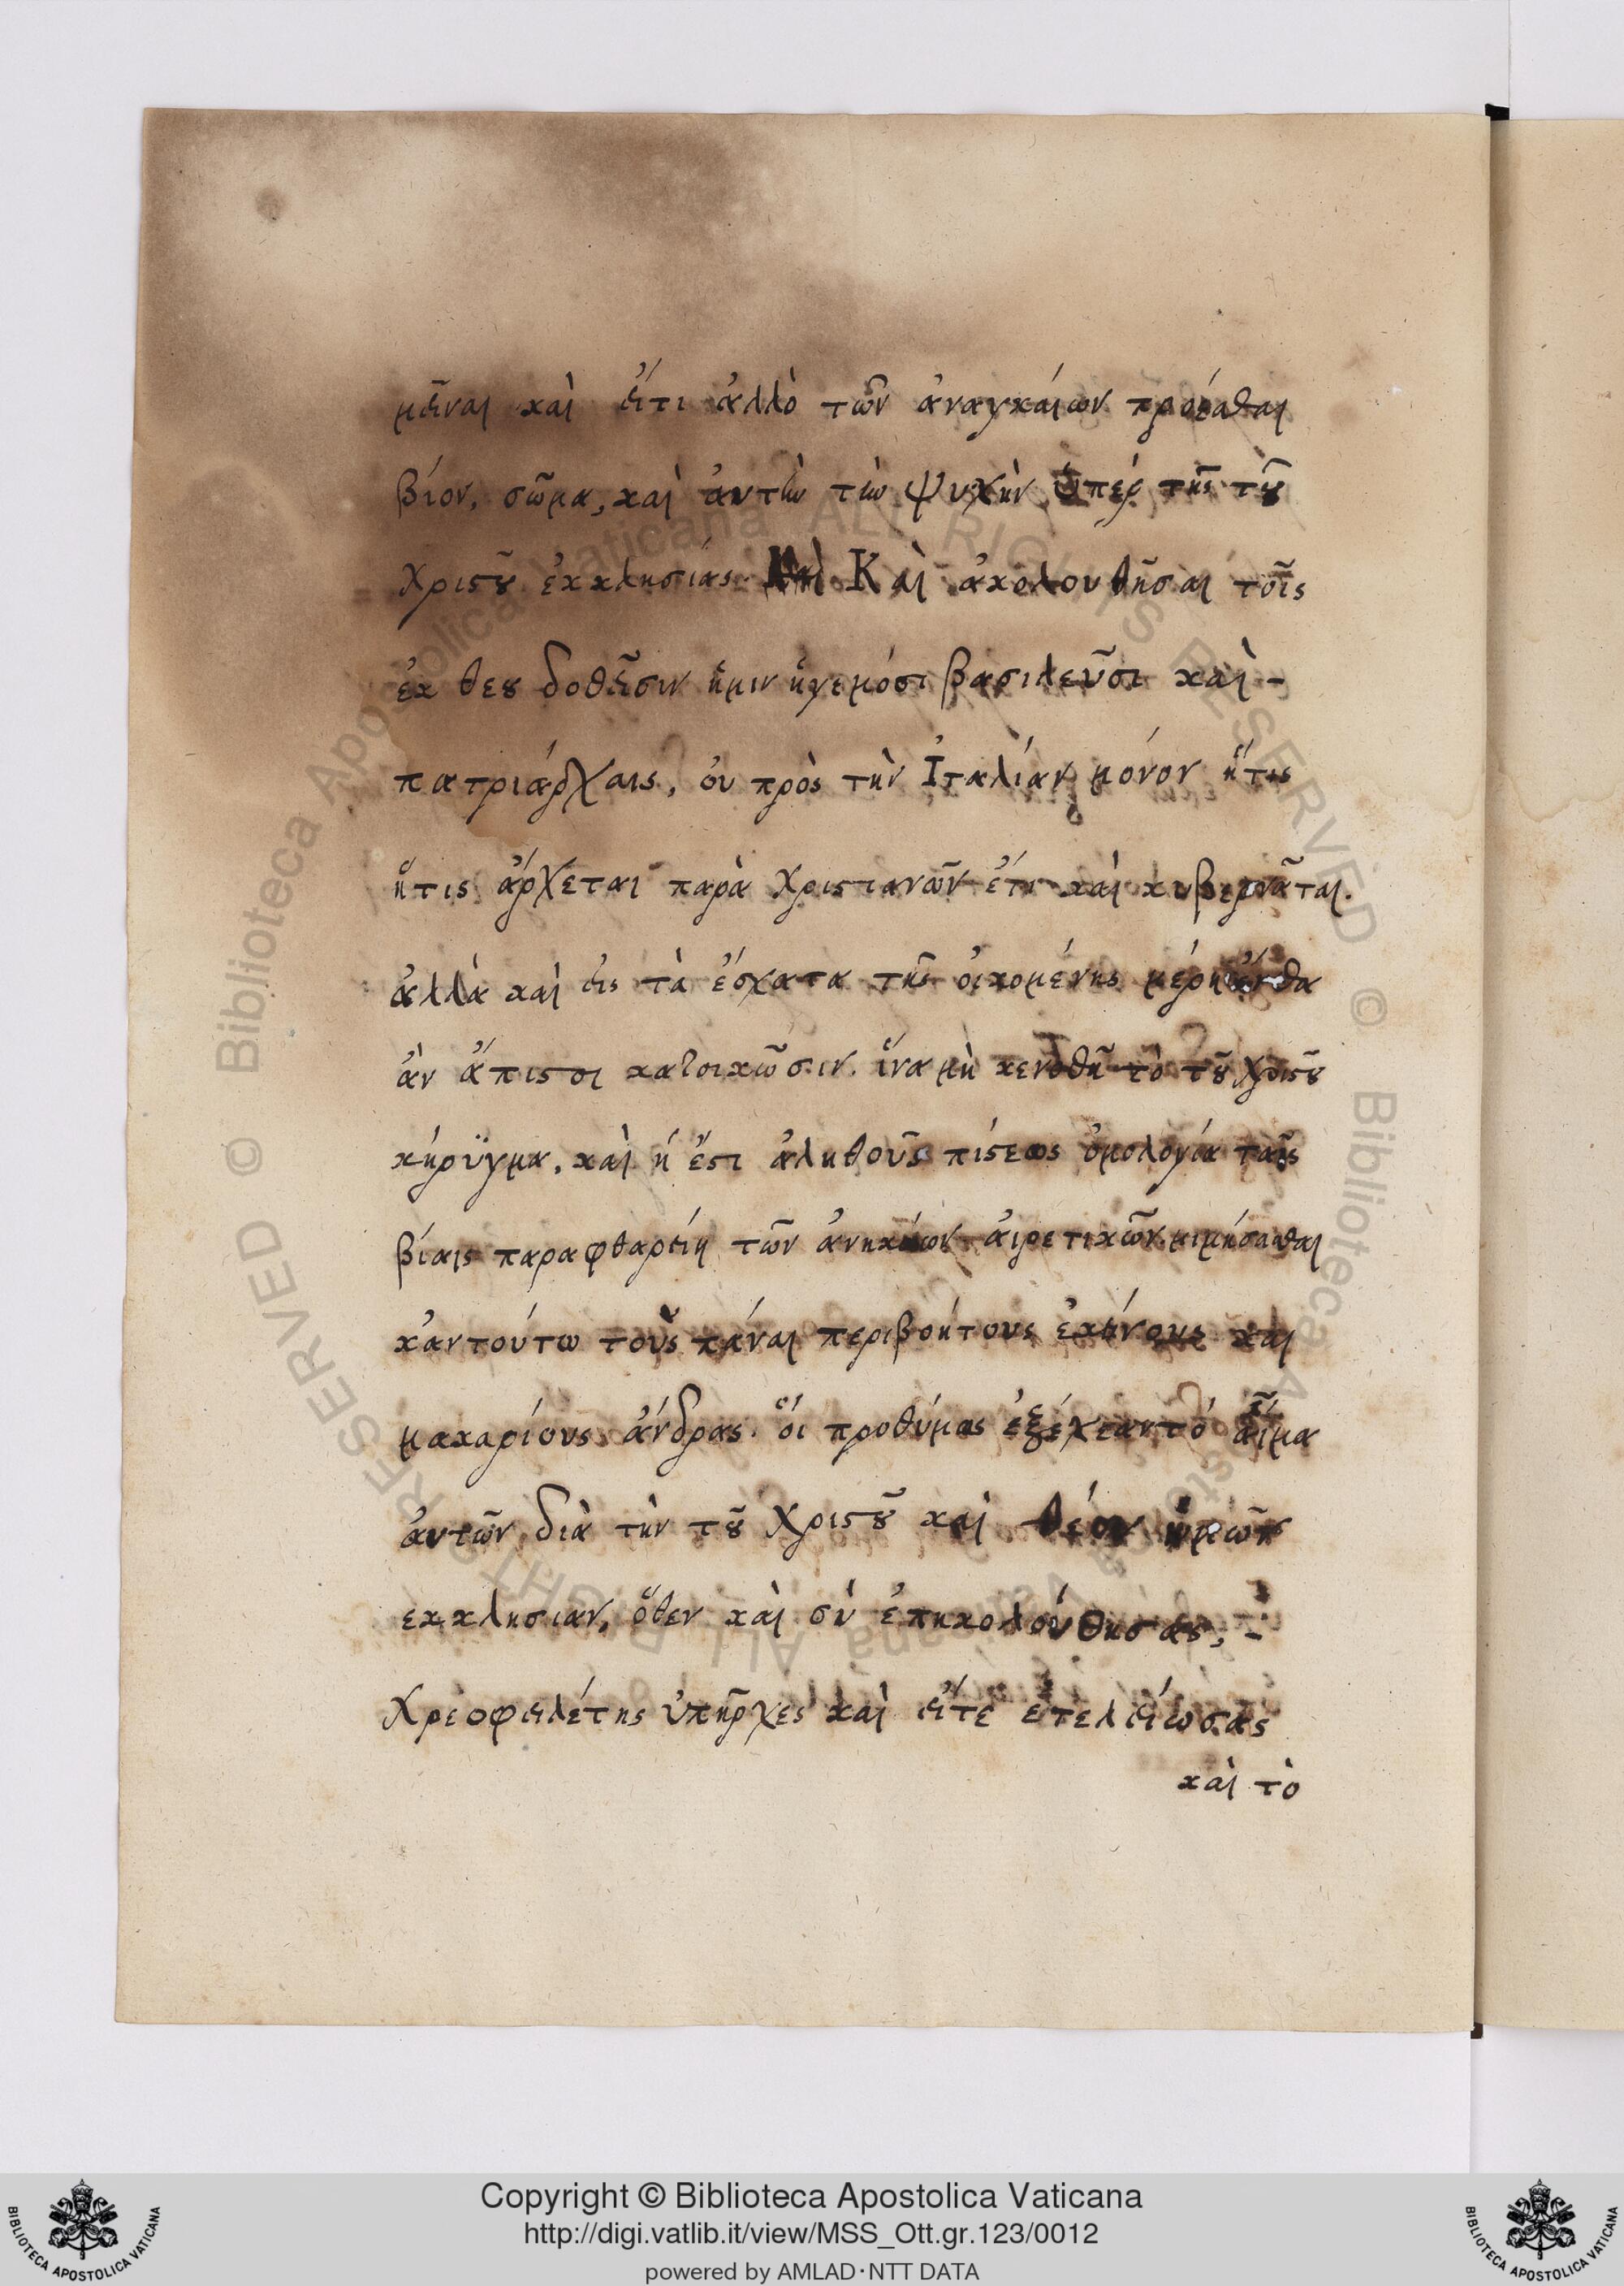 μεῖναι καὶ εἴτι ἀλλὸ τῶν ἀναγκαίων προέσθαι
βίον, σῶμα, καὶ ἀυτὴν τὴν ψυχὴν ὑπὲρ τῆς τοῦ
χριστοῦ ἐκκλησίας. Καὶ ἀκολουθῆσαι τοῖς
ἐκ θεου δοθεῖσιν ἥμιν ἡγεμόσι βασιλεῦσι καὶ-
πατριάρχαις, ὀυ πρὸς τὴν Ἰταλίαν μόνον ἥτις
ἥτις ἀρχεται παρὰ χριστιανῶν ἔτι καὶ κυβερνᾶται.
ἀλλὰ καὶ εἰς τὰ ἔσχατα τῆς ὀικομένης μέρη ἔνθα
ἀν ἄπιστοι κατοικῶσιν. ἵνα μὴ κενωθῆ τὸ τοῦ χριστοῦ
κήρϋγμα, καὶ ἡ ἔστι ἀληθοῦς πίστεως ὁμολογία ταῖς
βίαις παραφθαρείη τῶν ἀιρετικῶν. μιμήσασθαι
κἀντούτω τοῦς πάναι περιβοήτους ἐκείνους καὶ
μακαρίους ἄνδρας. ὅι προθύμως ἐξέχεαντὸ ἁῖμα
ἀυτῶν διὰ τὴν τοῦ Χριστοῦ καὶ θέου ἡμῶν
εκκλησιαν, ὅθεν καὶ σὺ ἐπηκολούθησας, -
Χρεοφειλέτης ὑπῆρχες καὶ εἴτε ετελείωσας
καὶ τὸ
Copyright © Biblioteca Apostolica Vaticana
http://digi.vatlib.it/view/MSS_Ott.gr.123/0012
powered by AMLAD·NTT DATA